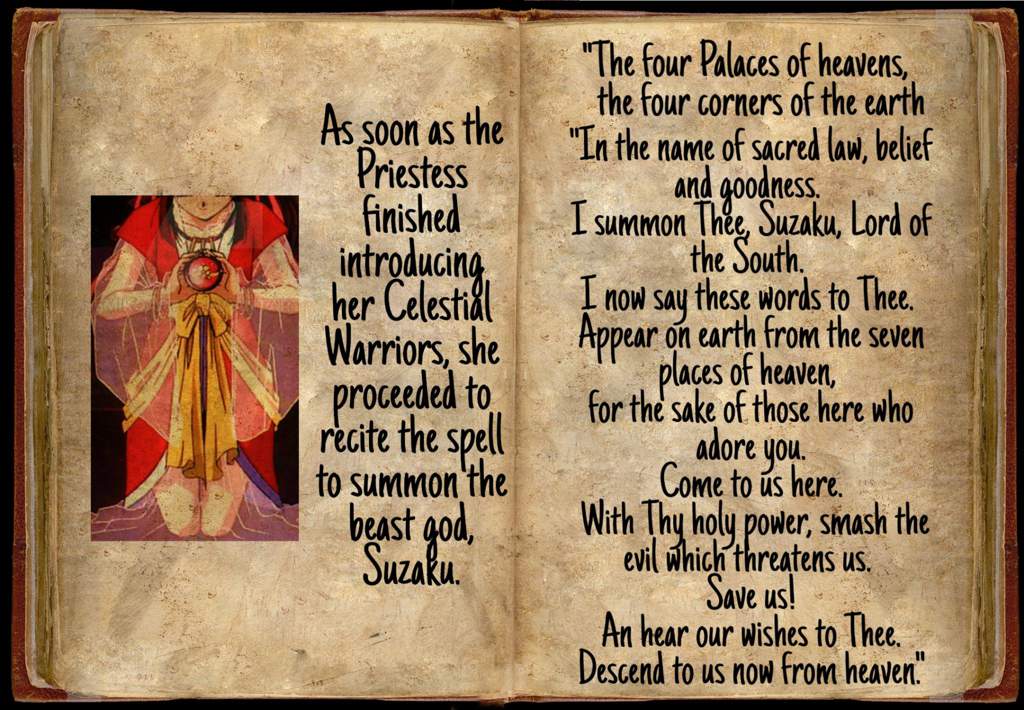 As soon as the
Priestess
finished
introducing
her Celestial
Warriors, she
proceeded to
recite the spell
to summon the
beast god,
Suzaku.
"The four Palaces of heavens,
the four corners of the earth
"In the name of sacred law, belief
and goodness.
I summon Thee, Suzaku, Lord of
the South.
I now say these words to Thee.
Appear on earth from the seven
places of heaven,
for the sake of those here who
adore you.
Come to us here.
With Thy holy power, smash the
evil which threatens us.
Save us!
An hear our wishes to Thee.
Descend to us now from heaven."